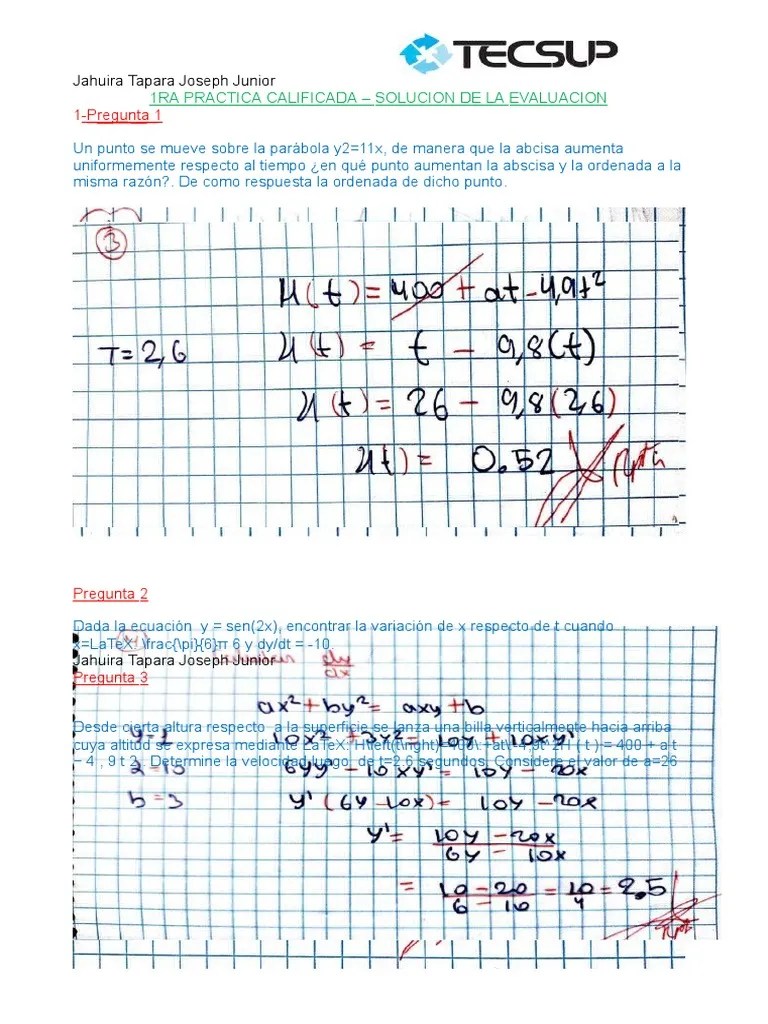 TECSUP
Jahuira Tapara Joseph Junior
1RA PRACTICA CALIFICADA – SOLUCION DE LA EVALUACION
1-Pregunta 1
Un punto se mueve sobre la parábola y2=11x, de manera que la abcisa aumenta
uniformemente respecto al tiempo ¿en qué punto aumentan la abscisa y la ordenada a la
misma razón?. De como respuesta la ordenada de dicho punto.
3
H(t) = 400 + at - 4,9t²
T = 2,6
H(t) = t - 9,8(t)
H(t) = 26 - 9,8(2,6)
H(t) = 0.52 Rpta
Pregunta 2
Dada la ecuación y = sen(2x), encontrar la variación de x respecto de t cuando
x=LaTeX: \frac{\pi}{6}π 6 y dy/dt = -10
Jahuira Tapara Joseph Junior
dy/dx
Pregunta 3
ax² + by² = axy + b
Desde cierta altura respecto a la superficie se lanza una billa verticalmente hacia arriba
y=1
10x² + 3y² = 10y + 10xy'
cuya altitud se expresa mediante LaTeX: H\left(t\right)=400\:+at\-4,9t^2H ( t ) = 400 + a t
− 4 , 9 t 2 . Determine la velocidad luego de t=2.6 segundos. Considere el valor de a=26
2=10
6yy' - 10xy' = 10y - 20x
b = 3
y' (6y - 10x) = 10y - 20x
y' = 10y - 20x
6y - 10x
= 10 - 20 = 10 = 2.5
6 - 10 4
Rpta